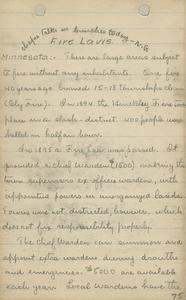 Fire Laws.
Minnesota:- There are large areas subject
to fire without any inhabitants. One fire
40 years ago burned 15-18 townships clean
In 1894 the Hinckley Fire took
place in a slash district. 400 people was
killed in half an hour.
In 1895 a Fire Law was passed. It
provided a Chief Warden $1500, making the
town supervisors ex officio wardens, with
appointive powers in unorganized lands.
Towns was not districted, however, which
does not fix responsibility properly.
The Chief Warden can summon and
appoint extra wardens during drouths
and emergencies. $5000 are available
each year. Local Wardens have the